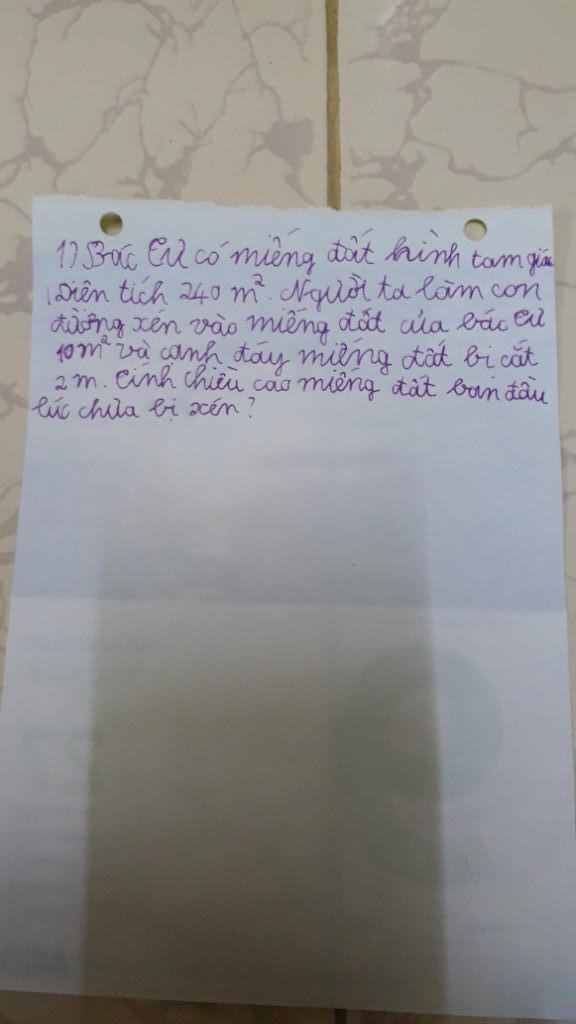 1) Bác Tư có miếng đất hình tam giác
, Diện tích 240 m². Người ta làm con
đường xén vào miếng đất của bác Tư
10m² và cạnh đáy miếng đất bị cắt
2 m. Tính chiều cao miếng đất ban đầu
lúc chưa bị xén?